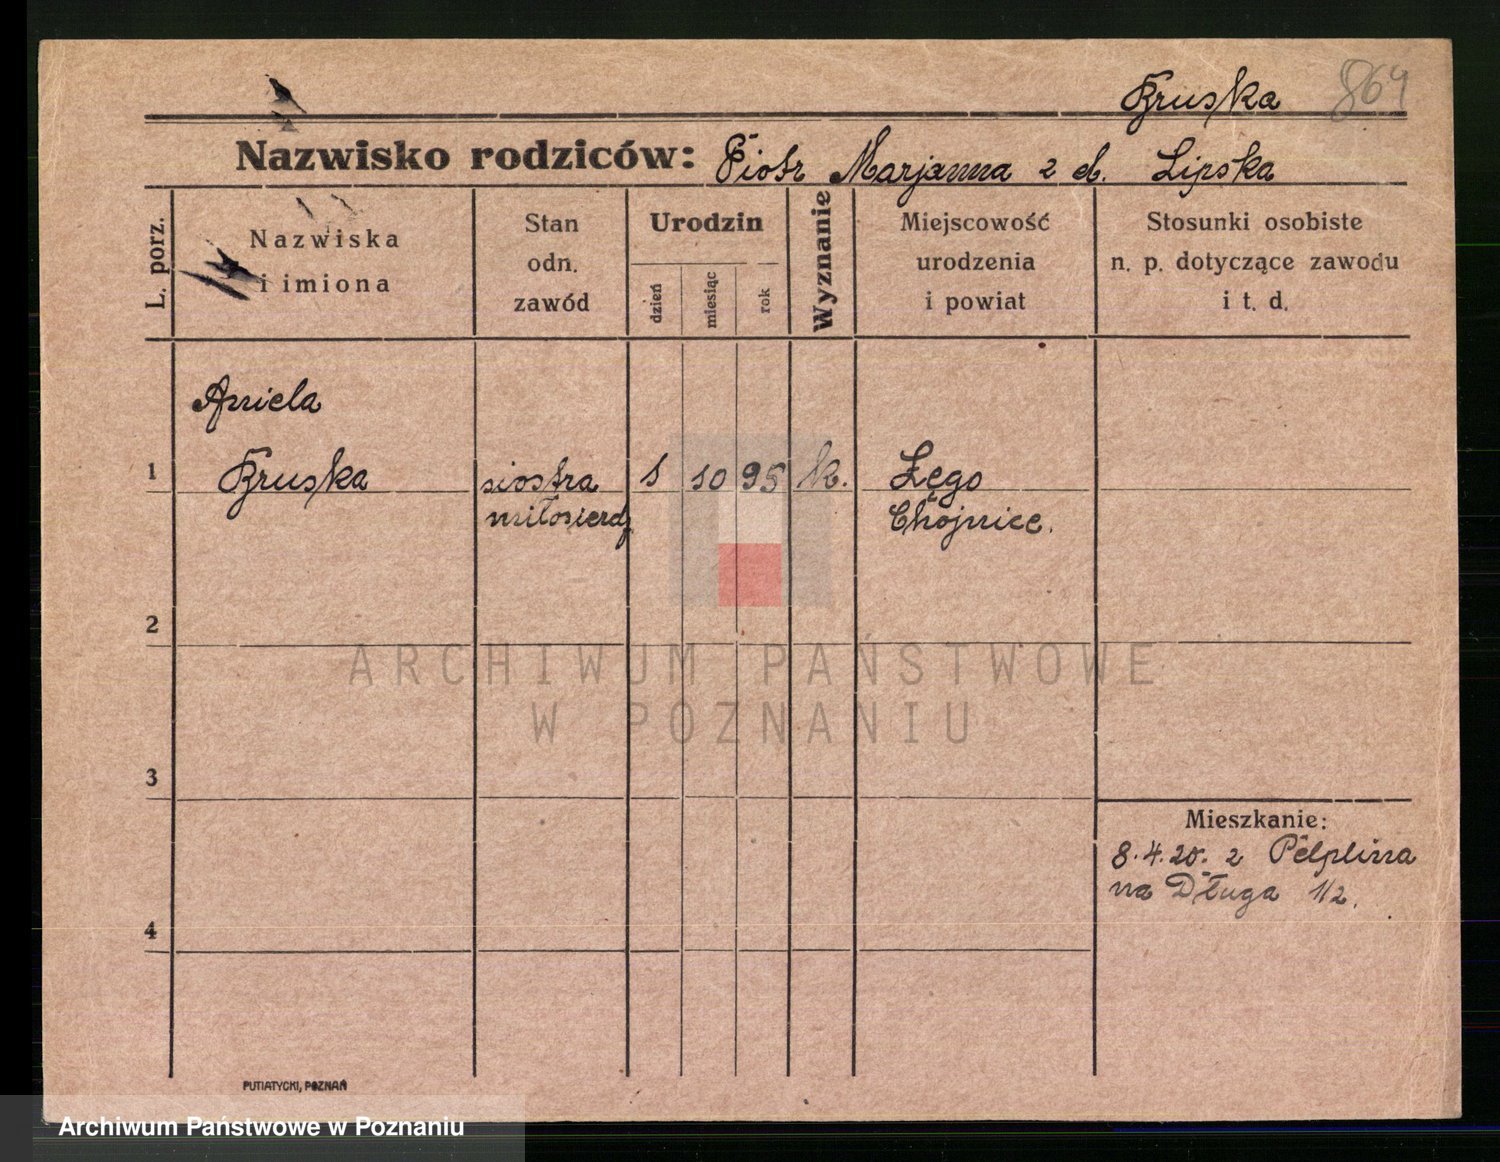 Bruska 864
Nazwisko rodziców: Piotr Marjanna z d. Lipska
L. porz.
Nazwiska
i imiona
Stan
odn.
zawód
Urodzin
dzień
miesiąc
rok
Wyznanie
Miejscowość
urodzenia
i powiat
Stosunki osobiste
n. p. dotyczące zawodu
i t. d.
Aniela
1 Bruska siostra 1 10 95 k. Łęgo
miłosierdz Chojnice.
2
ARCHIWUM PAŃSTWOWE
W POZNANIU
3
Mieszkanie:
8.4.20. z Pelplina
na Długa 1/2.
4
PUTIATYCKI, POZNAŃ
Archiwum Państwowe w Poznaniu